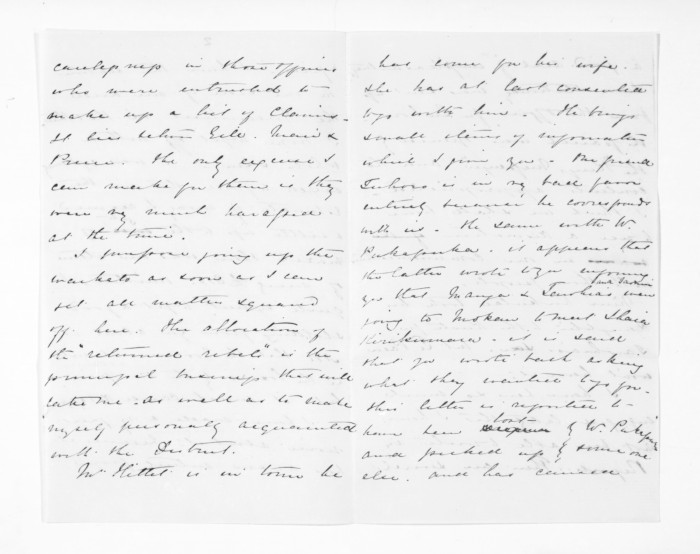 carelessness in those officers
who were entrusted to
make up a list of Claims.
It lies between Gele. Mair &
Preece. The only excuse I
can make for them is they
were very much harassed
at the time.
I purpose going up the
Waikato as soon as I can
get all matters squared
off here. The allocation of
the "returned rebels" is the
principal business that will
take me. as well as to make
myself personally acquainted
with the District.
Mr Hettit is in town he
has come for his wife.
She has at last consented
to go with him. He brings
small items of information
which I give you. Our friend
is in very bad favor
entirely because he corresponds
with us. The same with W.
Pukapuka. it appears that
the latter wrote to you informing
you that Manga & Tawhiao were
going to Mokau to meet Ihaia
Kirikumara. it is said
that you wrote back asking
what they wanted to go for.
this letter is reported to
have been lost by W. Pukapuka
and picked up by some one
else. and has caused